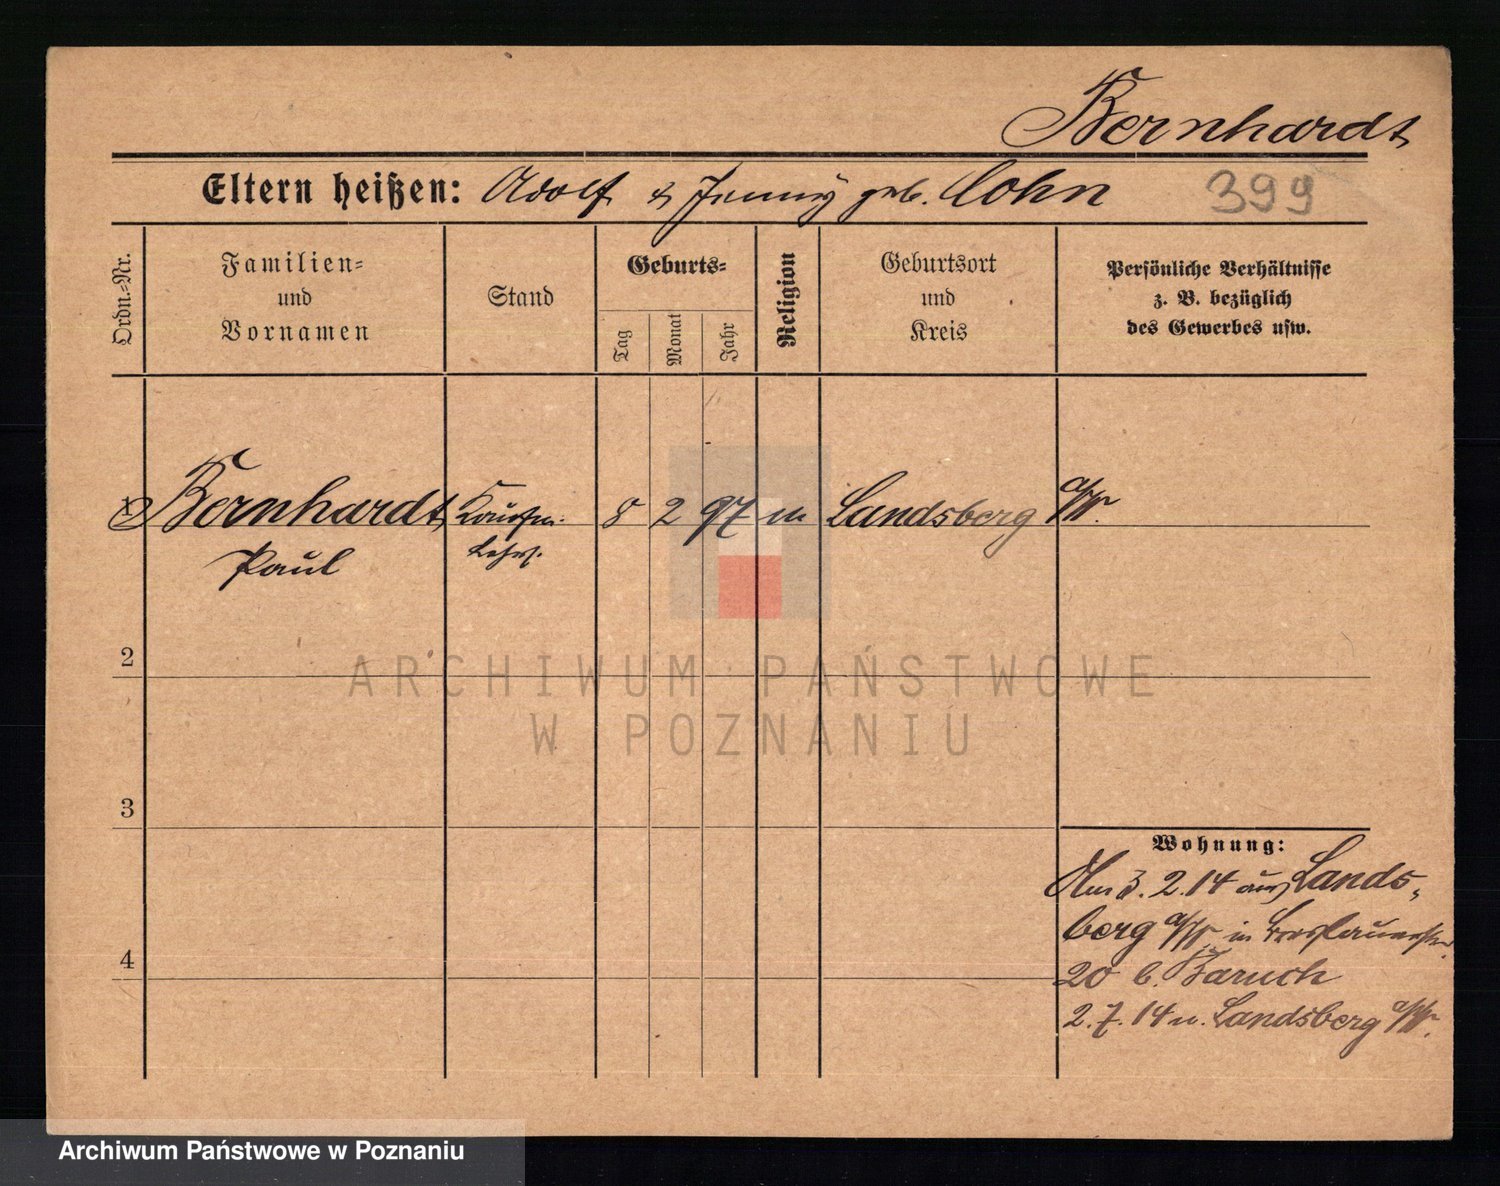 Bernhardt
Eltern heißen: Adolf & Jenny geb. Cohn 399
Ordn.-Nr.
Familien-
und
Vornamen
Stand
Geburts-
Tag
Monat
Jahr
Religion
Geburtsort
und
Kreis
Persönliche Verhältnisse
z. B. bezüglich
des Gewerbes usw.
1 Bernhardt Kaufm. 8 2 97 m Landsberg a/W.
Paul Lehrl.
2
3
4
Wohnung:
Am 3. 2. 14 aus Lands-
berg a/W. in Breslauerstr.
20 b. Baruch
2. 7. 14 n. Landsberg a/W.
ARCHIWUM PAŃSTWOWE
W POZNANIU
Archiwum Państwowe w Poznaniu